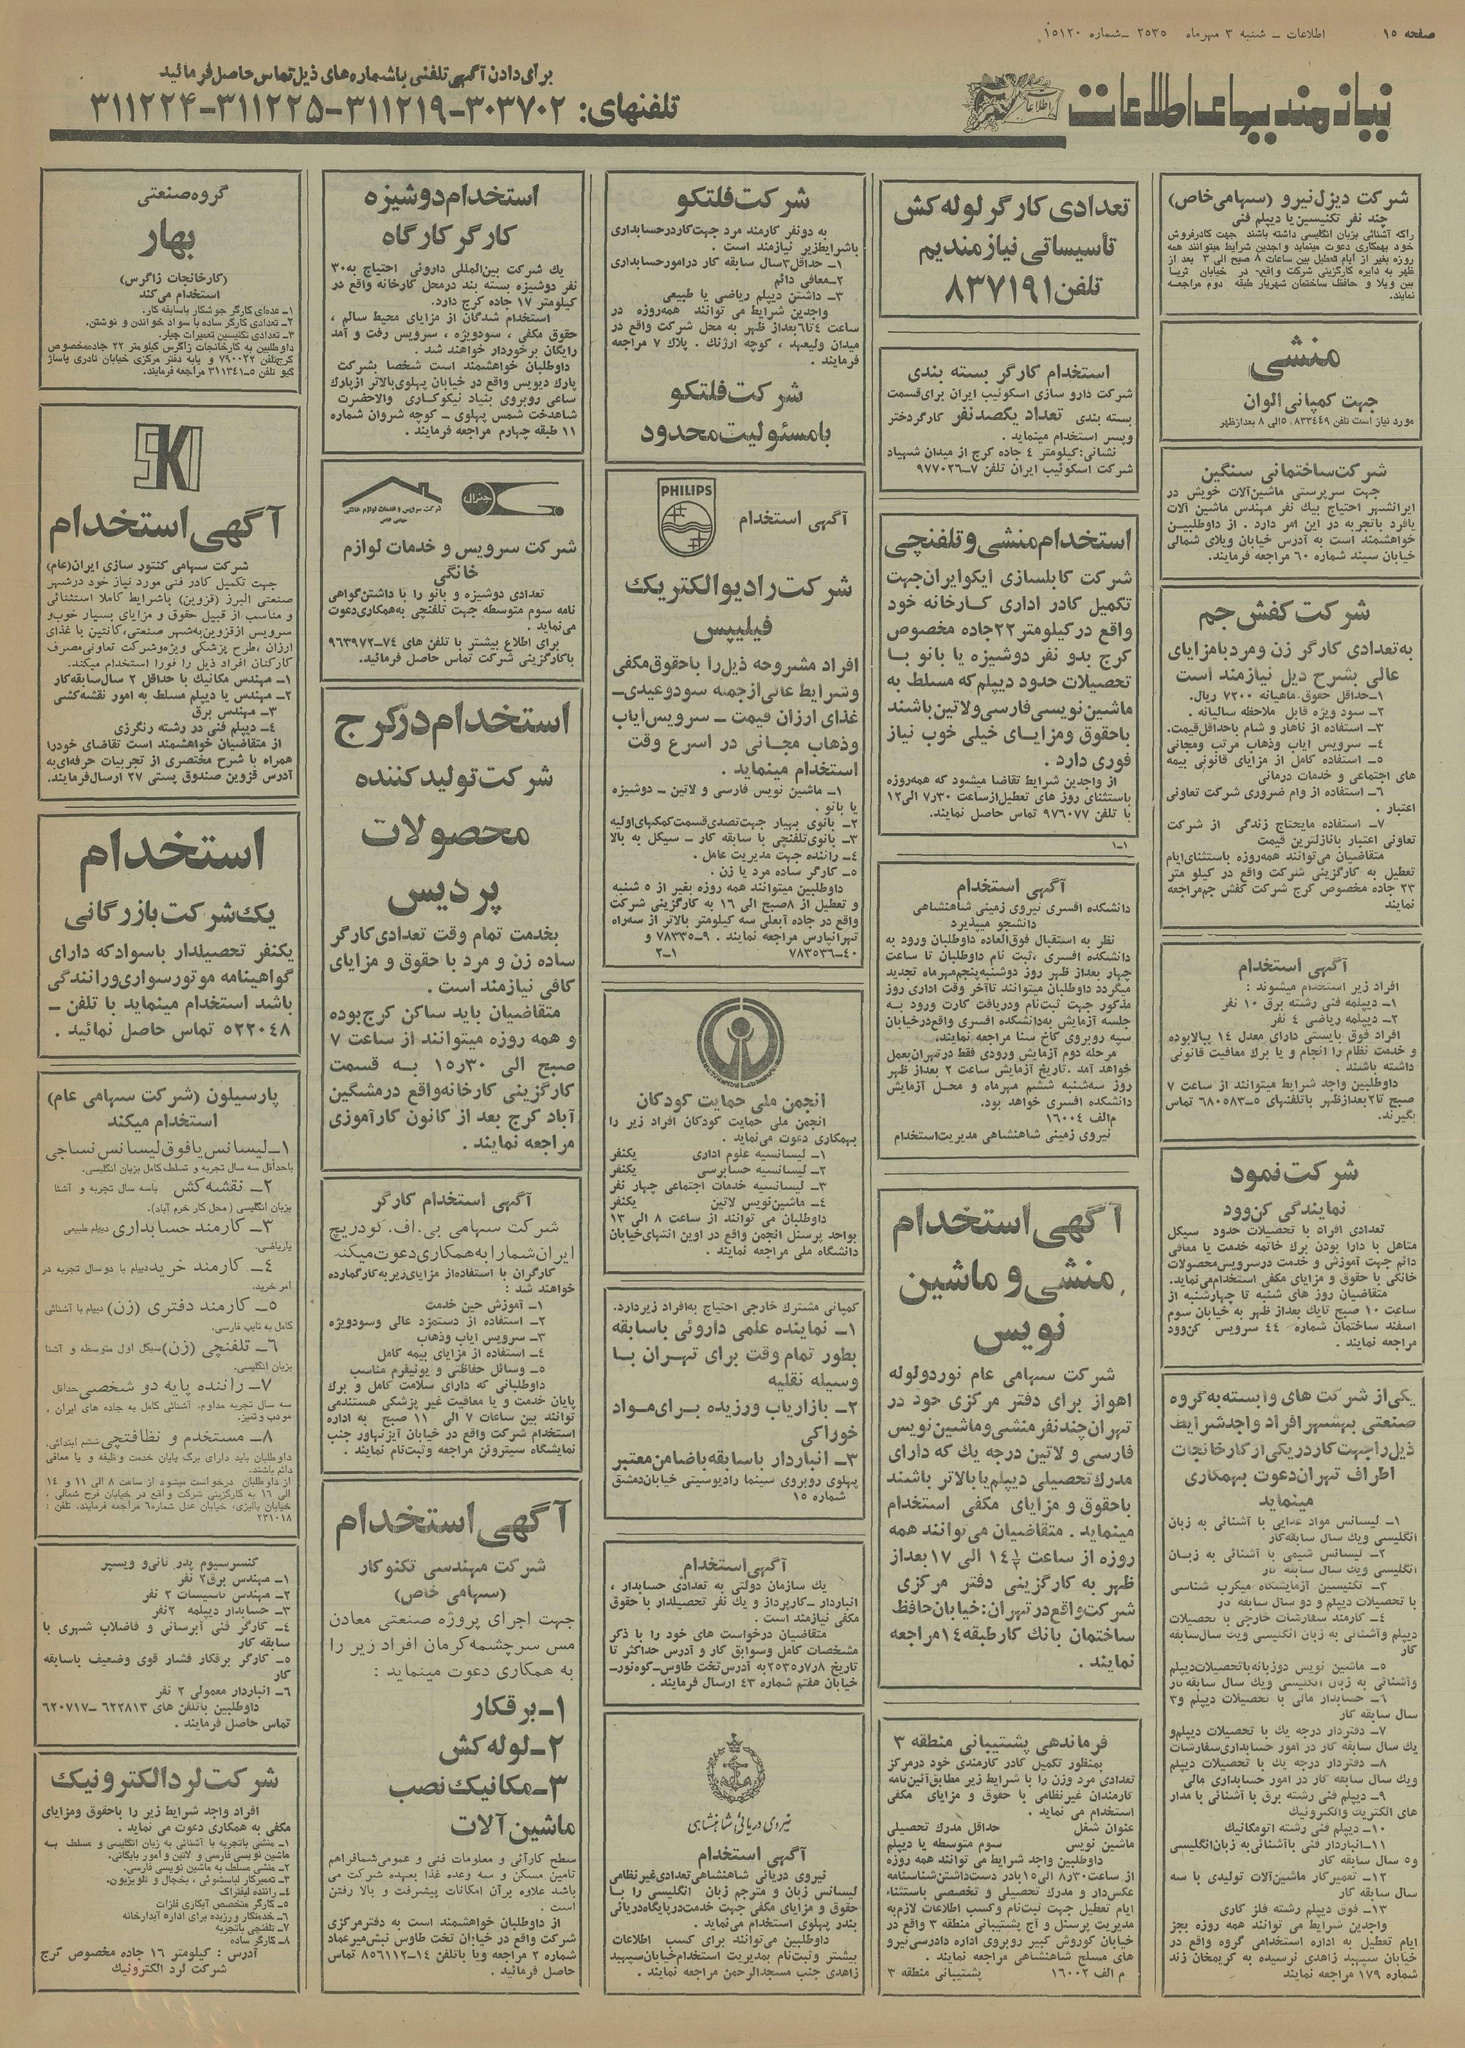 صفحه ۱۵
اطلاعات ـ شنبه ۳ مهرماه ۲۵۳۵ ـ شماره ۱۵۱۲۰
نیازمندیهای اطلاعات
برای دادن آگهی تلفنی باشماره‌های ذیل تماس حاصل فرمائید
تلفنهای: ۳۰۳۷۰۲-۳۱۱۲۱۹-۳۱۱۲۲۵-۳۱۱۲۲۴
شرکت دیزل نیرو (سهامی خاص)
چند نفر تکنیسین یا دیپلم فنی
راکه آشنائی بزبان انگلیسی داشته باشند جهت کادرفروش
خود بهمکاری دعوت مینماید واجدین شرایط میتوانند همه
روزه بغیر از ایام تعطیل بین ساعات ۸ صبح الی ۳ بعد از
ظهر به دایره کارگزینی شرکت واقع در خیابان ثریا
بین ویلا و حافظ ساختمان شهریار طبقه دوم مراجعه
نمایند.
منشی
جهت کمپانی الوان
مورد نیاز است تلفن ۸۳۳۴۴۹، ۵الی ۸ بعدازظهر
شرکت ساختمانی سنگین
جهت سرپرستی ماشین‌آلات خویش در
ایرانشهر احتیاج بیك نفر مهندس ماشین آلات
یافرد باتجربه در این امر دارد . از داوطلبین
خواهشمند است به آدرس خیابان ویلای شمالی
خیابان سپند شماره ۶۰ مراجعه فرمایند.
شرکت کفش جم
به تعدادی کارگر زن ومرد بامزایای
عالی بشرح ذیل نیازمند است
۱ـ حداقل حقوق ماهیانه ۷۲۰۰ ریال.
۲ـ سود ویژه قابل ملاحظه سالیانه .
۳ـ استفاده از ناهار و شام باحداقل قیمت.
۴ـ سرویس ایاب وذهاب مرتب ومجانی
۵ـ استفاده کامل از مزایای قانونی بیمه
های اجتماعی و خدمات درمانی
۶ـ استفاده از وام ضروری شرکت تعاونی
اعتبار .
۷ـ استفاده مایحتاج زندگی از شرکت
تعاونی اعتبار بانازلترین قیمت
متقاضیان می‌توانند همه‌روزه باستثنای‌ایام
تعطیل به کارگزینی شرکت واقع در کیلو متر
۲۳ جاده مخصوص کرج شرکت کفش جم‌مراجعه
نمایند
آگهی استخدام
افراد زیر استخدام میشوند :
۱ـ دیپلمه فنی رشته برق ۱۰ نفر
۲ـ دیپلمه ریاضی ۴ نفر
افراد فوق بایستی دارای معدل ۱۴ ببالابوده
و خدمت نظام را انجام و یا برك معافیت قانونی
داشته باشند .
داوطلبین واجد شرایط میتوانند از ساعت ۷
صبح تا۲بعدازظهر باتلفنهای ۵-۶۸۰۵۸۳ تماس
بگیرند.
شرکت نمود
نمایندگی کن‌وود
تعدادی افراد با تحصیلات حدود سیکل
متاهل با دارا بودن برك خاتمه خدمت یا معافی
دائم جهت آموزش و خدمت درسرویس محصولات
خانگی با حقوق و مزایای مکفی استخدام‌می‌نماید.
متقاضیان روز های شنبه تا چهارشنبه از
ساعت ۱۰ صبح تایك بعداز ظهر به خیابان سوم
اسفند ساختمان شماره ۴۴ سرویس کن‌وود
مراجعه نمایند .
یکی از شرکت های وابسته به گروه
صنعتی بهشهر افراد واجد شرایط
ذیل راجهت کار دریکی از کارخانجات
اطراف تهران دعوت بهمکاری
مینماید
۱ـ لیسانس مواد غذایی با آشنائی به زبان
انگلیسی ویك سال سابقه کار
۲ـ لیسانس شیمی با آشنائی به زبان
انگلیسی ویك سال سابقه کار
۳ـ تکنیسین آزمایشگاه میکرب شناسی
با تحصیلات دیپلم و دو سال سابقه کار
۴ـ کارمند سفارشات خارجی با تحصیلات
دیپلم وآشنائی به زبان انگلیسی ویك سال‌سابقه
کار
۵ـ ماشین نویس دوزبانه باتحصیلات دیپلم
وآشنائی به زبان انگلیسی ویك سال سابقه کار
۶ـ حسابدار مالی با تحصیلات دیپلم و۳
سال سابقه کار
۷ـ دفتردار درجه یك با تحصیلات دیپلم‌و
یك سال سابقه کار در امور حسابداری‌سفارشات
۸ـ دفتردار درجه یك با تحصیلات دیپلم
ویك سال سابقه کار در امور حسابداری مالی
۹ـ دیپلم فنی رشته برق با آشنائی با مدار
های الکتریك والکترونیك
۱۰ـ دیپلم فنی رشته اتومکانیك
۱۱ـ انباردار فنی باآشنائی به زبان‌انگلیسی
و۵ سال سابقه کار
۱۲ـ تعمیرکار ماشین‌آلات تولیدی با سه
سال سابقه کار
۱۳ـ فوق دیپلم رشته فلز کاری
واجدین شرایط می توانند همه روزه بجز
ایام تعطیل به اداره استخدامی گروه واقع در
خیابان سپهبد زاهدی نرسیده به کریمخان زند
شماره ۱۷۹ مراجعه نمایند
تعدادی کارگر لوله کش
تأسیساتی نیازمندیم
تلفن ۸۳۷۱۹۱
استخدام کارگر بسته بندی
شرکت دارو سازی اسکوئیب ایران برای قسمت
بسته بندی تعداد یکصد نفر کارگر دختر
وپسر استخدام مینماید .
نشانی: کیلومتر ۴ جاده کرج از میدان شهیاد
شرکت اسکوئیب ایران تلفن ۷-۹۷۷۰۲۶
استخدام منشی و تلفنچی
شرکت کابلسازی ایکوایران جهت
تکمیل کادر اداری کارخانه خود
واقع در کیلومتر ۲۲جاده مخصوص
کرج بدو نفر دوشیزه یا بانو با
تحصیلات حدود دیپلم که مسلط به
ماشین نویسی فارسی و لاتین باشند
باحقوق ومزایای خیلی خوب نیاز
فوری دارد .
از واجدین شرایط تقاضا میشود که همه‌روزه
باستثنای روز های تعطیل‌از ساعت ۷٫۳۰ الی ۱۲
با تلفن ۹۷۶۰۷۷ تماس حاصل نمایند.
۱ـ۱
آگهی استخدام
دانشکده افسری نیروی زمینی شاهنشاهی
دانشجو میپذیرد
نظر به استقبال فوق‌العاده داوطلبان ورود به
دانشکده افسری ،ثبت نام داوطلبان تا ساعت
چهار بعداز ظهر روز دوشنبه پنجم‌مهرماه تجدید
میگردد داوطلبان میتوانند تاآخر وقت اداری روز
مذکور جهت ثبت‌نام ودریافت کارت ورود به
جلسه آزمایش به‌دانشکده افسری واقع‌درخیابان
سپه روبروی کاخ سنا مراجعه نمایند.
مرحله دوم آزمایش ورودی فقط درتهران‌بعمل
خواهد آمد .تاریخ آزمایش ساعت ۲ بعداز ظهر
روز سه‌شنبه ششم مهرماه و محل آزمایش
دانشکده افسری خواهد بود.
م‌الف ۱۶۰۰۴
نیروی زمینی شاهنشاهی مدیریت‌استخدام
آگهی استخدام
منشی و ماشین
نویس
شرکت سهامی عام نوردولوله
اهواز برای دفتر مرکزی خود در
تهران چند نفر منشی و ماشین نویس
فارسی و لاتین درجه یك که دارای
مدرك تحصیلی دیپلم یا بالاتر باشند
باحقوق و مزایای مکفی استخدام
مینماید . متقاضیان می توانند همه
روزه از ساعت ۱۴ الی ۱۷ بعداز
ظهر به کارگزینی دفتر مرکزی
شرکت واقع در تهران: خیابان حافظ
ساختمان بانك کار طبقه ۱۴ مراجعه
نمایند .
فرماندهی پشتیبانی منطقه ۳
بمنظور تکمیل کادر کارمندی خود درمرکز
تعدادی مرد وزن را با شرایط زیر مطابق‌آئین‌نامه
کارمندان غیرنظامی با حقوق و مزایای مکفی
استخدام می نماید .
عنوان شغل حداقل مدرك تحصیلی
ماشین نویس سوم متوسطه یا دیپلم
داوطلبین واجد شرایط می توانند همه روزه
از ساعت ۸٫۳۰ الی ۱۵ بادر دست‌داشتن‌شناسنامه
عکس‌دار و مدرك تحصیلی و تخصصی باستثناء
ایام تعطیل جهت ثبت‌نام وکسب اطلاعات لازم‌به
مدیریت پرسنل و آج پشتیبانی منطقه ۳ واقع در
خیابان کوروش کبیر روبروی اداره دادرسی‌نیرو
های مسلح شاهنشاهی مراجعه نمایند .
م الف ۱۶۰۰۲ پشتیبانی منطقه ۳
شرکت فلتکو
به دونفر کارمند مرد جهت‌کاردرحسابداری
باشرایط‌زیر نیازمند است .
۱ـ حداقل ۳سال سابقه کار درامورحسابداری
۲ـ معافی دائم
۳ـ داشتن دیپلم ریاضی یا طبیعی
واجدین شرایط می توانند همه‌روزه در
ساعت ۴تا۶بعداز ظهر به محل شرکت واقع در
میدان ولیعهد ، کوچه ارژنك . پلاك ۷ مراجعه
فرمایند .
شرکت فلتکو
بامسئولیت محدود
PHILIPS
آگهی استخدام
شرکت رادیو الکتریك
فیلیپس
افراد مشروحه ذیل را باحقوق مکفی
وشرایط عالی از جمله سود و عیدی ـ
غذای ارزان قیمت ـ سرویس ایاب
وذهاب مجانی در اسرع وقت
استخدام مینماید .
۱ـ ماشین نویس فارسی و لاتین ـ دوشیزه
یا بانو .
۲ـ بانوی بهیار جهت تصدی‌قسمت‌کمکهای‌اولیه
۳ـ بانوی‌تلفنچی با سابقه کار ـ سیکل به بالا
۴ـ راننده جهت مدیریت عامل .
۵ـ کارگر ساده مرد یا زن .
داوطلبین میتوانند همه روزه بغیر از ۵ شنبه
و تعطیل از ۸صبح الی ۱۶ به کارگزینی شرکت
واقع در جاده آبعلی سه کیلومتر بالاتر از سه‌راه
تهرانپارس مراجعه نمایند . ۹-۷۸۳۳۵ و
۴۰-۷۸۳۵۳۶ ۱ـ۲
انجمن ملی حمایت کودکان
انجمن ملی حمایت کودکان افراد زیر را
بهمکاری دعوت می‌نماید .
۱ـ لیسانسیه علوم اداری یکنفر
۲ـ لیسانسیه حسابرسی یکنفر
۳ـ لیسانسیه خدمات اجتماعی چهار نفر
۴ـ ماشین‌نویس لاتین یکنفر
داوطلبان می توانند از ساعت ۸ الی ۱۳
بواحد پرسنل انجمن واقع در اوین انتهای‌خیابان
دانشگاه ملی مراجعه نمایند .
کمپانی مشترك خارجی احتیاج به‌افراد زیردارد.
۱ـ نماینده علمی داروئی باسابقه
بطور تمام وقت برای تهران با
وسیله نقلیه
۲ـ بازاریاب ورزیده برای مواد
خوراکی
۳ـ انباردار باسابقه باضامن معتبر
پهلوی روبروی سینما رادیوسیتی خیابان‌دمشق
شماره ۱۵
آگهی استخدام
یك سازمان دولتی به تعدادی حسابدار ،
انباردار ـ کارپرداز و یك نفر تحصیلدار با حقوق
مکفی نیازمند است .
متقاضیان درخواست های خود را با ذکر
مشخصات کامل وسوابق کار و آدرس حداکثر تا
تاریخ ۲۵۳۵٫۷٫۸به آدرس تخت طاوس-کوه‌نور-
خیابان هفتم شماره ۴۳ ارسال فرمایند .
نیروی دریائی شاهنشاهی
آگهی استخدام
نیروی دریائی شاهنشاهی تعدادی‌غیرنظامی
لیسانس زبان و مترجم زبان انگلیسی را با
حقوق و مزایای مکفی جهت خدمت‌درپایگاه‌دریائی
بندر پهلوی استخدام می‌نماید .
داوطلبین می‌توانند برای کسب اطلاعات
بیشتر وثبت‌نام بمدیریت استخدام‌خیابان‌سپهبد
زاهدی جنب مسجدالرحمن مراجعه نمایند .
استخدام دوشیزه
کارگر کارگاه
یك شرکت بین‌المللی داروئی احتیاج به‌۳۰
نفر دوشیزه بسته بند درمحل کارخانه واقع در
کیلومتر ۱۷ جاده کرج دارد.
استخدام شدگان از مزایای محیط سالم ،
حقوق مکفی ، سودویژه ، سرویس رفت و آمد
رایگان برخوردار خواهند شد .
داوطلبان خواهشمند است شخصا بشرکت
پارك دیویس واقع در خیابان پهلوی‌بالاتر ازپارك
ساعی روبروی بنیاد نیکوکاری والاحضرت
شاهدخت شمس پهلوی ـ کوچه شروان شماره
۱۱ طبقه چهارم مراجعه فرمایند .
جنرال
شرکت سرویس و خدمات لوازم خانگی
سهامی خاص
شرکت سرویس و خدمات لوازم
خانگی
تعدادی دوشیزه و بانو را با داشتن‌گواهی
نامه سوم متوسطه جهت تلفنچی به‌همکاری‌دعوت
می‌نماید .
برای اطلاع بیشتر با تلفن های ۷۴-۹۶۳۹۷۲
باکارگزینی شرکت تماس حاصل فرمائید.
استخدام در کرج
شرکت تولید کننده
محصولات
پردیس
بخدمت تمام وقت تعدادی کارگر
ساده زن و مرد با حقوق و مزایای
کافی نیازمند است .
متقاضیان باید ساکن کرج بوده
و همه روزه میتوانند از ساعت ۷
صبح الی ۱۵٫۳۰ به قسمت
کارگزینی کارخانه واقع در مشگین
آباد کرج بعد از کانون کارآموزی
مراجعه نمایند .
آگهی استخدام کارگر
شرکت سهامی بی. اف. گودریچ
ایران شمارا به همکاری دعوت میکند
کارگران با استفاده‌از مزایای‌زیر‌به‌کارگمارده
خواهند شد :
۱ـ آموزش حین خدمت
۲ـ استفاده از دستمزد عالی وسودویژه
۳ـ سرویس ایاب وذهاب
۴ـ استفاده از مزایای بیمه کامل
۵ـ وسائل حفاظتی و یونیفرم مناسب
داوطلبانی که دارای سلامت کامل و برك
پایان خدمت و یا معافیت غیر پزشکی هستندمی
توانند بین ساعات ۷ الی ۱۱ صبح به اداره
استخدام شرکت واقع در خیابان آیزنهاور جنب
نمایشگاه سیتروئن مراجعه وثبت‌نام نمایند .
آگهی استخدام
شرکت مهندسی تکنوکار
(سهامی خاص)
جهت اجرای پروژه صنعتی معادن
مس سرچشمه کرمان افراد زیر را
به همکاری دعوت مینماید :
۱ـ برقکار
۲ـ لوله کش
۳ـ مکانیك نصب
ماشین آلات
سطح کارآئی و معلومات فنی و عمومی شمافراهم
تامین مسکن و سه وعده غذا بعهده شرکت می
باشد علاوه برآن امکانات پیشرفت و بالا رفتن
است .
از داوطلبان خواهشمند است به دفترمرکزی
شرکت واقع در خیابان تخت طاوس نبش‌میرعماد
شماره ۲ مراجعه ویا باتلفن ۱۴-۸۵۶۱۱۲ تماس
حاصل فرمائید .
گروه صنعتی
بهار
(کارخانجات زاگرس)
استخدام می‌کند
۱ـ عده‌ای کارگر جوشکار باسابقه کار.
۲ـ تعدادی کارگر ساده با سواد خواندن و نوشتن.
۳ـ تعدادی تکنیسین تعمیرات چیلر.
داوطلبین به کارخانجات زاگرس کیلومتر ۲۲ جاده‌مخصوص
کرج‌تلفن ۷۹۰۰۲۲ و یابه دفتر مرکزی خیابان نادری پاساژ
گیو تلفن ۵-۳۱۱۳۴۱ مراجعه فرمایند.
آگهی استخدام
شرکت سهامی کنتور سازی ایران(عام)
جهت تکمیل کادر فنی مورد نیاز خود درشهر
صنعتی البرز (قزوین) باشرایط کاملا استثنائی
و مناسب از قبیل حقوق و مزایای بسیار خوب‌و
سرویس ازقزوین‌به‌شهر صنعتی،کانتین با غذای
ارزان ،طرح پزشکی ویژه‌وشرکت تعاونی‌مصرف
کارکنان افراد ذیل را فورا استخدام میکند.
۱ـ مهندس مکانیك با حداقل ۲ سال‌سابقه‌کار
۲ـ مهندس یا دیپلم مسلط به امور نقشه‌کشی
۳ـ مهندس برق
۴ـ دیپلم فنی در رشته رنگرزی
از متقاضیان خواهشمند است تقاضای خودرا
همراه با شرح مختصری از تجربیات حرفه‌ای‌به
آدرس قزوین صندوق پستی ۲۷ ارسال‌فرمایند.
استخدام
یك شرکت بازرگانی
یکنفر تحصیلدار باسواد که دارای
گواهینامه موتور سواری و رانندگی
باشد استخدام مینماید با تلفن ـ
۵۲۲۰۴۸ تماس حاصل نمائید .
پارسیلون (شرکت سهامی عام)
استخدام میکند
۱ـ لیسانس یا فوق لیسانس نساجی
باحداقل سه سال تجربه و تسلط کامل بزبان انگلیسی.
۲ـ نقشه کش باسه سال تجربه و آشنا
بزبان انگلیسی (محل کار خرم آباد).
۳ـ کارمند حسابداری دیپلم طبیعی
یاریاضی.
۴ـ کارمند خرید دیپلم با دوسال تجربه در
امر خرید.
۵ـ کارمند دفتری (زن) دیپلم با آشنائی
کامل به تایپ فارسی.
۶ـ تلفنچی (زن) سیکل اول متوسطه و آشنا
بزبان انگلیسی.
۷ـ راننده پایه دو شخصی حداقل
سه سال تجربه مداوم، آشنائی کامل به جاده های ایران ،
مودب و تمیز.
۸ـ مستخدم و نظافتچی ششم ابتدائی.
داوطلبان باید دارای برگ پایان خدمت وظیفه و یا معافی
دائم باشند.
از داوطلبان درخواست میشود از ساعت ۸ الی ۱۱ و ۱۴
الی ۱۶ به کارگزینی شرکت واقع در خیابان فرح شمالی ،
خیابان پالیزی، خیابان عدل شماره۶ مراجعه فرمایند، تلفن :
۲۳۱۰۱۸
کنسرسیوم پدر تانی‌و ویسپر
۱ـ مهندس برق۲ نفر
۲ـ مهندس تاسیسات ۲ نفر
۳ـ حسابدار دیپلمه ۲نفر
۴ـ کارگر فنی آبرسانی و فاضلاب شهری با
سابقه کار
۵ـ کارگر برقکار فشار قوی وضعیف باسابقه
کار
۶ـ انباردار معمولی ۲ نفر
داوطلبین باتلفن های ۶۲۲۸۱۳ ـ۶۲۰۷۱۷
تماس حاصل فرمایند .
شرکت لرد الکترونیك
افراد واجد شرایط زیر را باحقوق ومزایای
مکفی به همکاری دعوت می نماید .
۱ـ منشی باتجربه با آشنائی به زبان انگلیسی و مسلط به
ماشین نویسی فارسی و لاتین و امور بایگانی.
۲ـ منشی مسلط به ماشین نویسی فارسی.
۳ـ تعمیرکار لباسشوئی ، یخچال و تلویزیون.
۴ـ راننده لیفتراك
۵ـ کارگر متخصص آبکاری فلزات
۶ـ خدمتکار ورزیده برای اداره آبدارخانه
۷ـ تلفنچی باتجربه
۸ـ کارگر ساده
آدرس : کیلومتر ۱۶ جاده مخصوص کرج
شرکت لرد الکترونیك